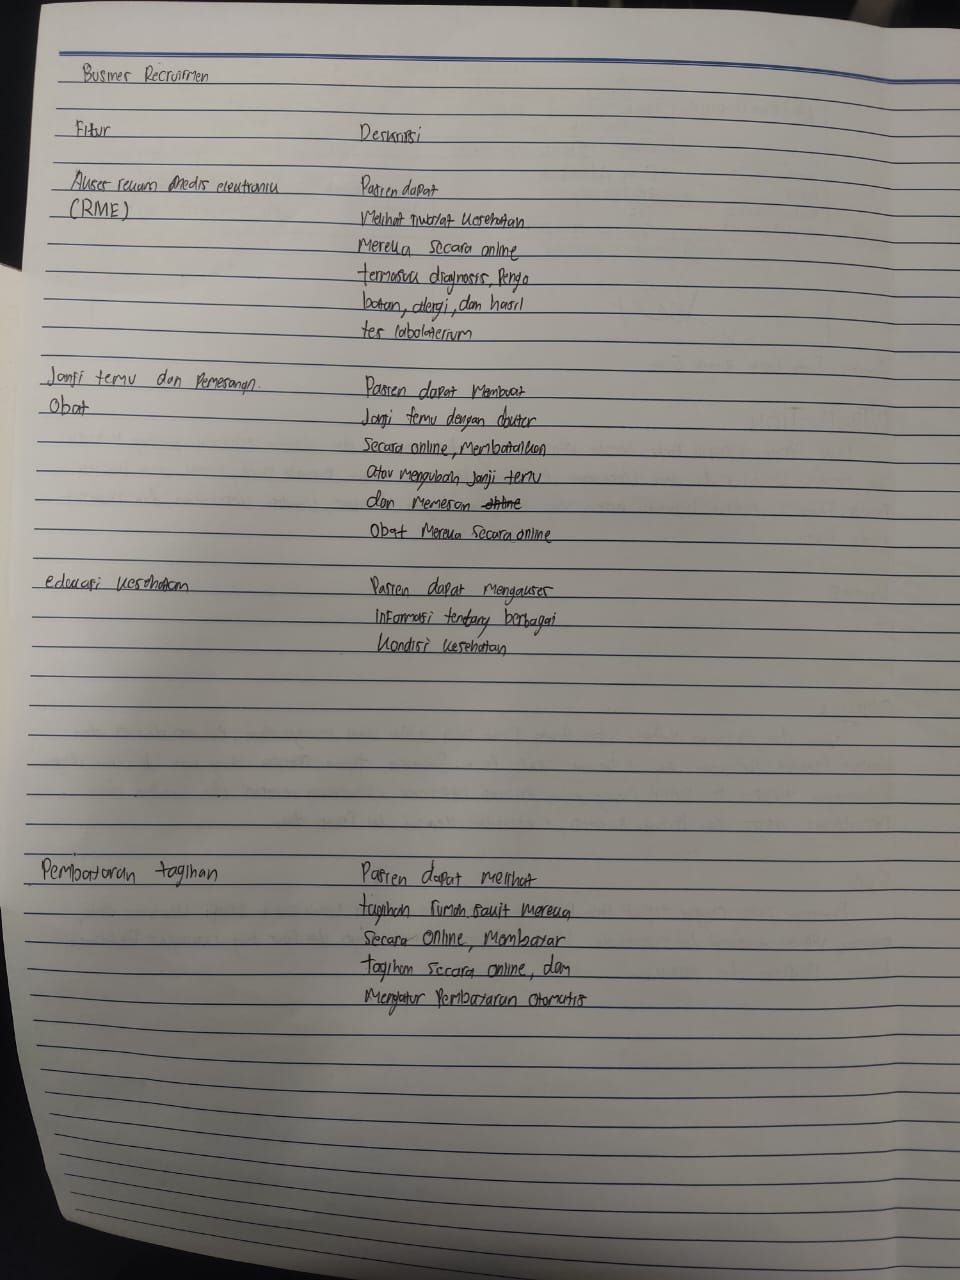 Busines Recruirmen
Fitur Deskripsi
Akses rekam medis elektronik Pasien dapat
(RME) Melihat riwayat kesehatan
Mereka secara online
termasuk diagnosis, Pengo
batan, alergi, dan hasil
tes labolaterium
Janji temu dan Pemesanan. Pasien dapat Membuat
Obat Janji temu dengan dokter
Secara online, Membatalkan
atau mengubah Janji temu
dan Memesan online
Obat Mereka Secara online
edukasi kesehatan Pasien dapat Mengakses
Informasi tentang berbagai
Kondisi kesehatan
Pembayaran tagihan Pasien dapat melihat
tagihan rumah sakit Mereka
Secara Online, Membayar
tagihan secara online, dan
Mengatur Pembayaran Otomatis